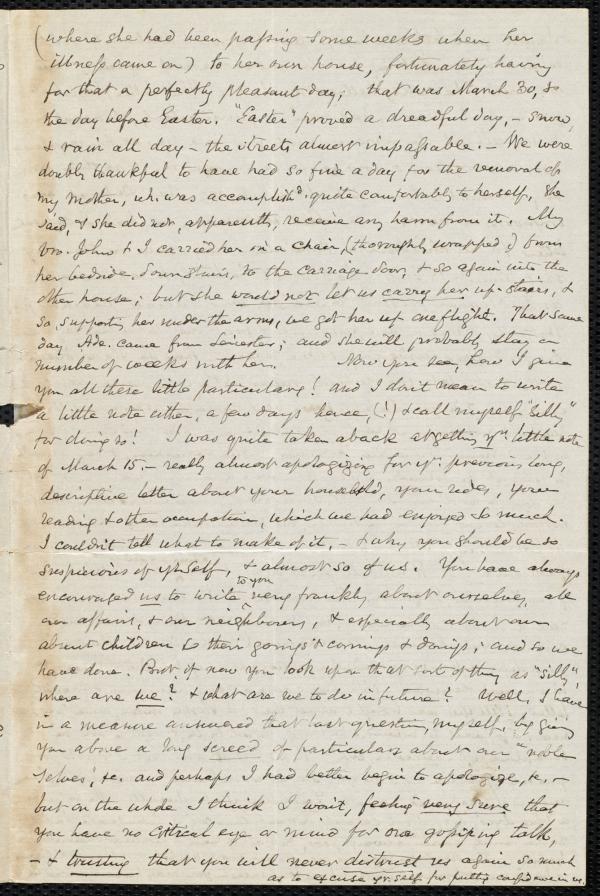 (where she had been passing some weeks when her
illness came on) to her own house, fortunately having
for that a perfectly pleasant day; that was March 30, &
the day before Easter. "Easter" proved a dreadful day, - snow,
& rain all day - the streets almost impassable. - We were
doubly thankful to have had so fine a day for the removal of
my mother, wh. was accomplishd. quite comfortably to herself, she
said, & she did not, apparently, receive any harm from it. My
bro. John & I carried her in a chair, (thoroughly wrapped,) from
her bedside, down stairs, to the carriage door, & so again into the
other house; but she would not let us carry her up-stairs, &
so, supporting her under the arms, we got her up one flight. That same
day Ade. came from Leicester; and she will probably stay a
number of weeks with her. Now you see, how I give
you all these little particulars! and I don't mean to write
a little note either, a few days hence, (!) & call myself "silly"
for doing so! I was quite taken aback at getting yr. little note
of March 15, - really almost apologizing for yr. previous long,
descriptive letter about your household, your rides, your
reading & other occupation, which we had enjoyed so much.
I couldn't tell what to make of it, - & why you should be so
suspicious of yrself, & almost so of us. You have always
encouraged us to write to you very frankly about ourselves, all
our affairs, & our neighbours, & especially about our
absent children & their goings & comings & doings; and so we
have done. But if now you look upon that sort of thing as "silly",
where are we? & what are we to do in future? Well, I have
in a measure answered that last question, myself, by giving
you above a long screed of particulars about our "noble
selves", &c. and perhaps I had better begin to apologize, &c, -
but on the whole I think I won't, feeling very sure that
you have no critical eye or mind for our gossiping talk,
- & trusting that you will never distrust us again so much
as to excuse yr. self for putting confidence in us.